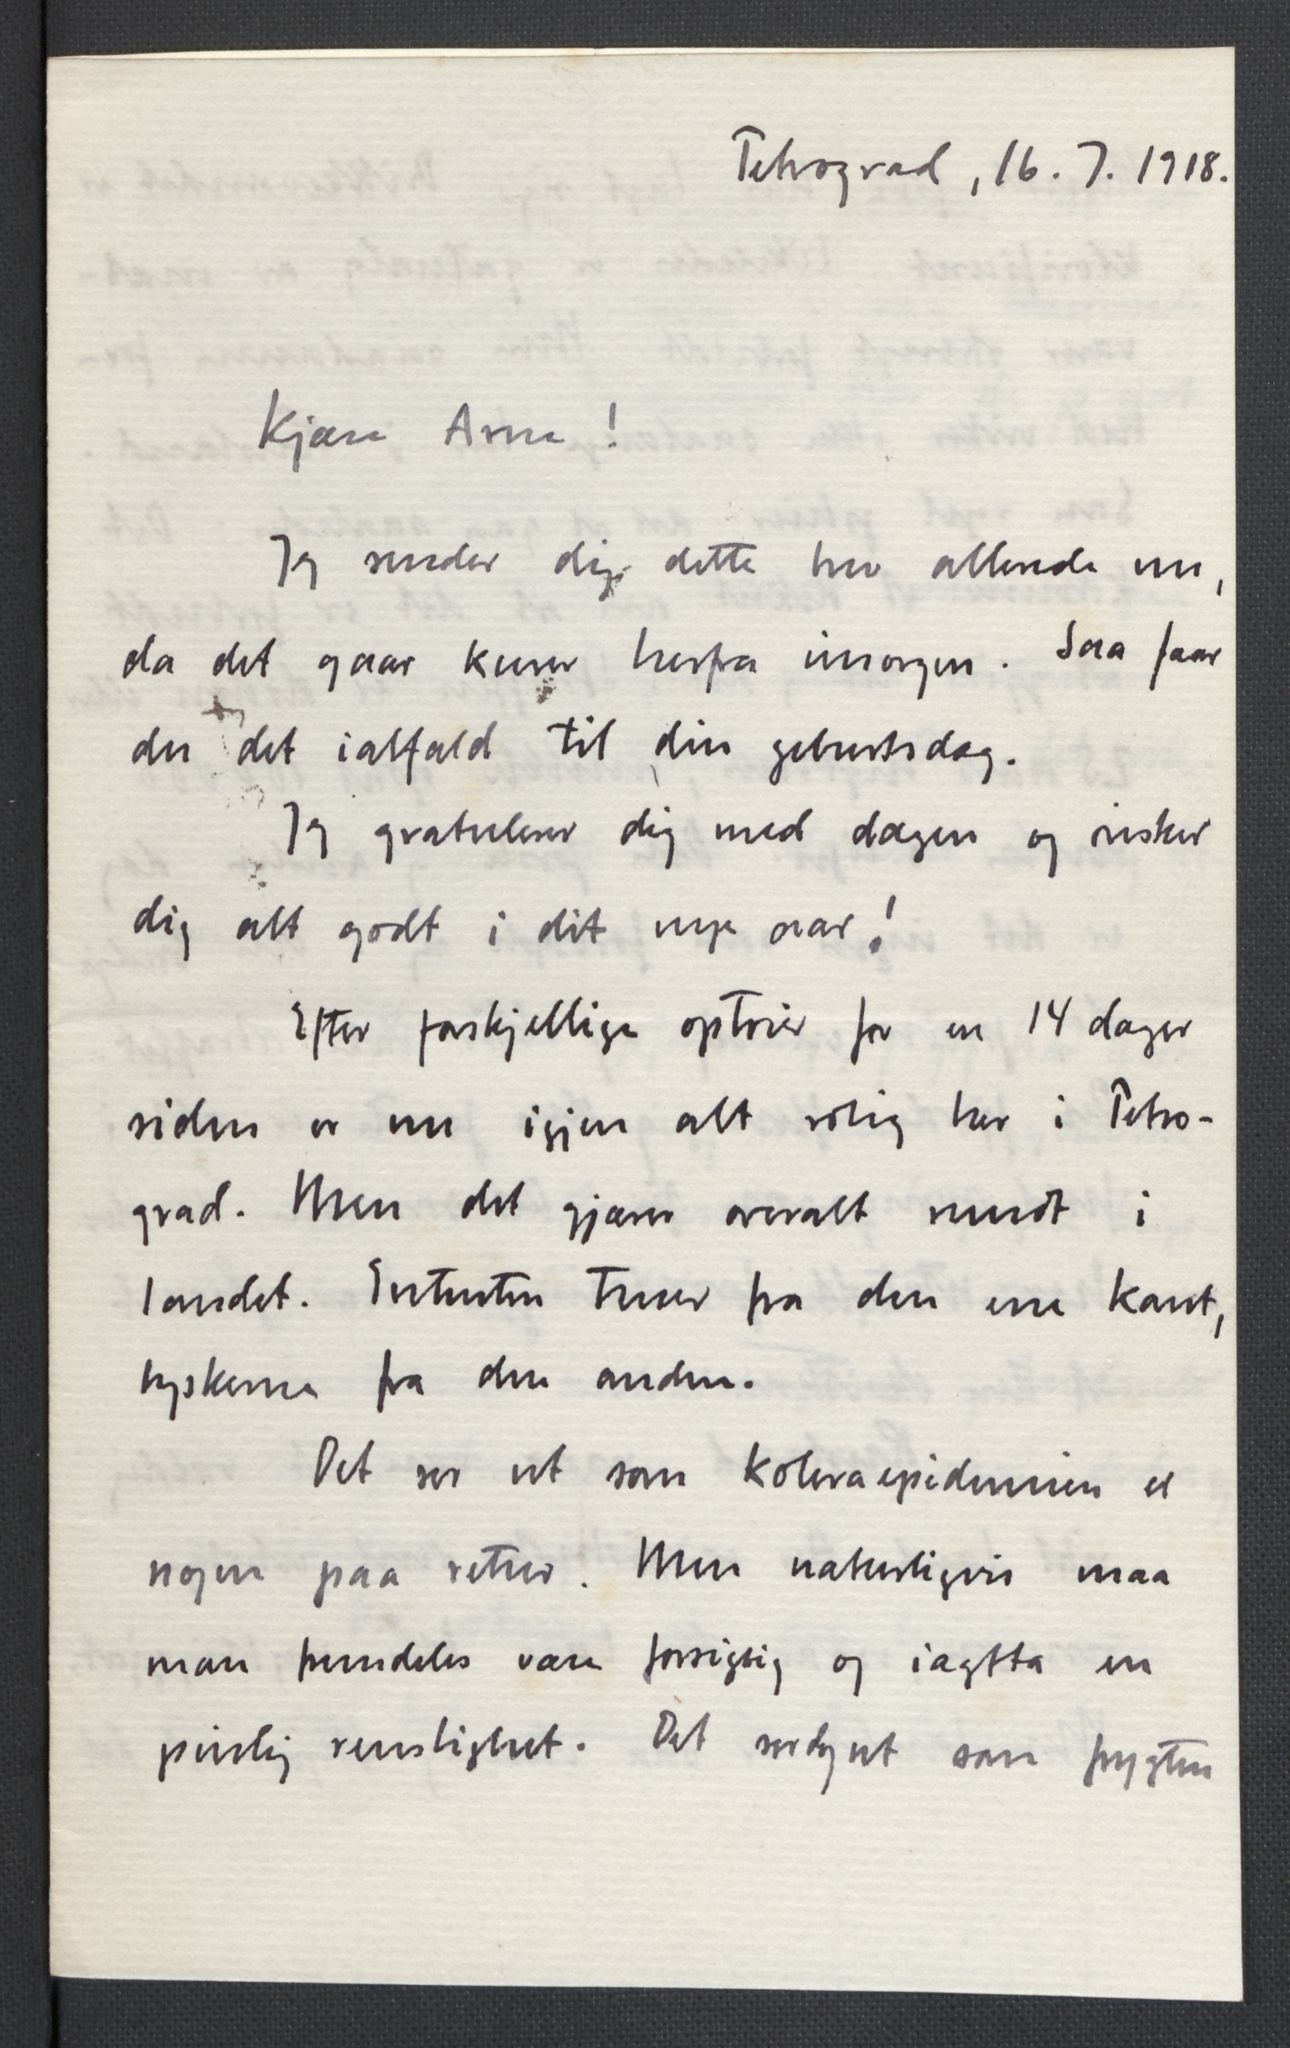 Petrograd, 16. 7. 1918.
Kjære Arne!
Jeg sender dig dette brev allerede nu,
da det gaar kurer herfra imorgen. Saa faar
du det ialfald til din geburtsdag.
Jeg gratulerer dig med dagen og ønsker
dig alt godt i dit nye aar!
Efter forskjellige optrin for en 14 dager
siden er nu igjen alt rolig her i Petro-
grad. Men det gjærer overalt rundt i
landet. Ententen truer fra den ene kant,
tyskerne fra den anden.
Det ser ut som koleraepidemien er
nogen paa retur. Men naturligvis maa
man fremdeles være forsigtig og iagtta en
pinlig renslighet. Det ser dog ut som frygten